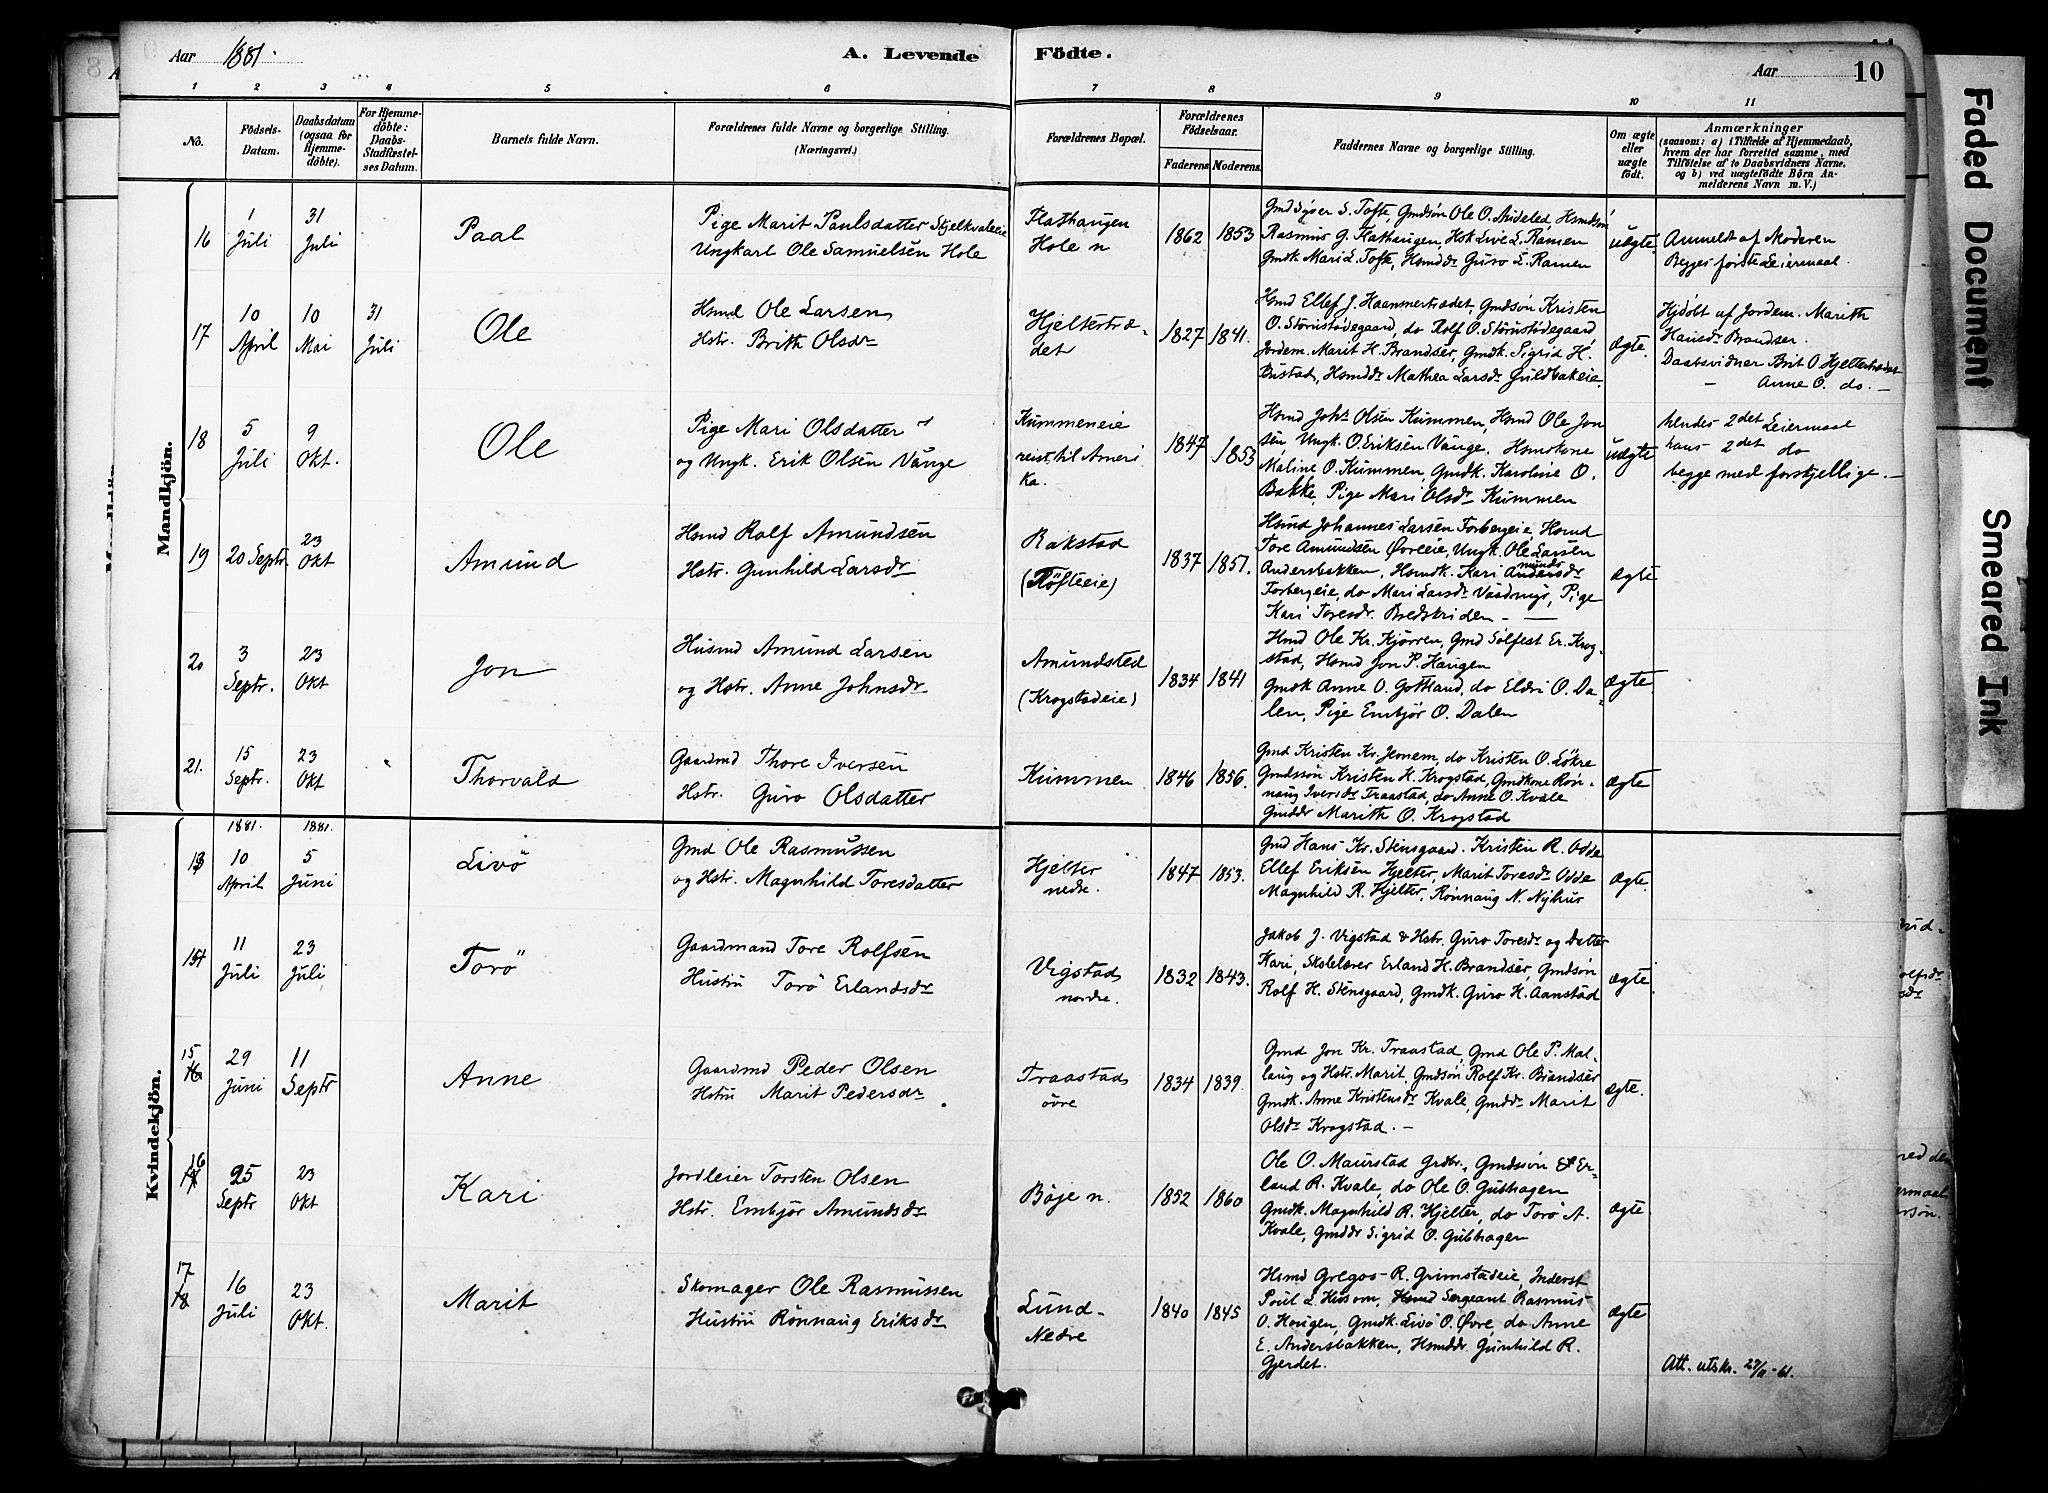 Aar 1881.
A. Levende Födte.
Aar 10
1 2 3 4 5 6 7 8 9 10 11
No.
Födsels-Datum.
Daabsdatum (ogsaa for Hjemme-döbte).
For Hjemme-döbte: Daabs-Stadfæstel-ses Datum.
Barnets fulde Navn.
Forældrenes fulde Navne og borgerlige Stilling.
(Næringsvei.)
Forældrenes Bopæl.
Forældrenes Födselsaar.
Faderens Moderens.
Faddernes Navne og borgerlige Stilling.
Om ægte eller uægte födt.
Anmærkninger
(saasom: a) i Tilfælde af Hjemmedaab,
hvem der har forrettet samme, med
Tilföielse af to Daabsvidners Navne,
og b) ved uægtefödte Börn An-
melderens Navn m. V.)
Mandkjön.
16
1 Juli
31 Juli
Paal
Pige Marit Paulsdatter Skjelkvaleeie
Ungkarl Ole Samuelsen Hole
Flathaugen
Hole n
1862 1853
Gmd Syver S. Tofte, Gmdsøn Ole O. Andeled, Hsmdsøn
Rasmus G. Flathaugen, Hsk Live L. Ramen
Gmdk Mari L. Tofte, Hsmddr Guro L. Ramen
uægte
Anmeldt af Moderen
Begges første Leiermaal.
17
10 April
10 Mai
31 Juli
Ole
Hsmd Ole Larsen
Hstr. Brith Olsdr
Hjeltertræ-
det
1827 1841.
Hsmd Ellef J. Haanmertrædet, Gmdsøn Kristen
O. Storustødegaard, do Rolf O. Storustødegaard
Jordem. Marit H. Brandser, Gmdk. Sigrid H.
Bustad, Hsmddr Mathea Larsdr Guldbakeie.
ægte.
Hjdöbt af Jordem. Marith
Hansdr Brandser.
Daabsvidner Brit O Hjeltertrædet
- Anne O. do. -
18
5 Juli
9 Okt.
Ole
Pige Mari Olsdatter
og Ungk. Erik Olsen Vange
Kummeneie
reist til Ameri
ka.
1847 1853
Hsmd Johs Olsen Kummen, Hsmd Ole Jon
sen Ungk. O Eriksen Vange. Hsmdkone
Maline O. Kummen, Gmdk. Karoline O.
Bakke, Pige Mari Olsdr Kummen
uægte
hendes 2det Leiermaal
hans 2det do
begge med forskjellige. -
19
20 Septr.
23 Okt
Amund
Hsmd Rolf Amundsen
Hstr. Gunhild Larsdr
Rakstad
(Tøfteeie)
1837 1851.
Hsmd Johannes Larsen Forbergeie, Hsmd
Tore Amundsen Øvreeie, Ungk. Ole Larsen
Andersbakken, Hsmdk. Kari Amundsdr
Forbergeie, do Mari Larsdr , Pige
Kari Toresdr. Bredskriden -
ægte
20
3 Septr.
23 Okt
Jon
Husmd Amund Larsen
og Hstr. Anne Johnsdr
Amundsted
(Krogstadeie)
1834 1841
Hsmd Ole Kr. Kjørren, Gmd Solfest Er. Krog-
stad, Hsmd Jon P. Haugen
Gmdk Anne O. Gottland, do Eldri O. Da-
len, Pige Embjør O. Dalen
ægte.
21.
15 Septr.
23 Okt
Thorvald
Gaardmd Thore Iversen
Hstr. Guro Olsdatter
Kummen
1846 1856.
Gmd Kristen Kr. Jonem, do Kristen O. Løkre
Gmdssøn Kristen K. Krogstad, Gmdkone Røn-
naug Iversdr Traastad, do Anne O. Kvale
Gmddr Marith O. Krogstad
ægte
Kvindekjön.
1881. 1881.
13
10 April
5 Juni
Livö
Gmd Ole Rasmussen
og Hstr. Magnhild Toresdatter
Hjelter
nedre.
1847 1853.
Gmd Hans Kr. Stensgaard. Kristen R. Odde
Ellef Eriksen Hjelter, Marit Toresdr Odde
Magnhild R. Hjelter, Rønnaug N. Nyhus
ægte.
14
11 Juli
23 Juli
Torö
Gaardmand Tore Rolfsen
Hustru Torö Erlandsdr
Vigstad
nordre.
1832 1843.
Jakob J. Vigstad & Hstr. Guro Toresdr og Datter
Kari, Skolelærer Erland H. Brandser, Gmdsøn
Rolf H. Stensgaard, Gmdk. Guro H. Aanstad
ægte.
15 16
29 Juni
11 Septr
Anne
Gaardmd Peder Olsen
Hstru Marit Pedersdr
Traastad
övre
1834 1839.
Gmd Jon Kr. Traastad, Gmd Ole P. Mal-
laug og Hstr. Marit, Gmdsøn Rolf Kr. Brandser
Gmdk. Anne Kristensdr Kvale, Gmddr Marit
Olsdr Krogstad. -
ægte.
16 17
25 Septr
23 Okt
Kari
Jordleier Torsten Olsen
Hstr. Embjør Amundsdr
Böje n.
1852 1860
Ole O. Maurstad Grdbr., Gmdssøn Er-
land R. Kvale, do Ole O. Gubhagen
Gmdk. Magnhild R. Hjelter, do Torö A.
Kvale, Gmddr Sigrid O. Gubhagen
ægte.
17 18
16 Juli
23 Okt.
Marit
Skomager Ole Rasmussen
Hustru Rønnaug Eriksdr
Lund
Nedre
1840 1845
Hsmd Gregos R. Grimstadeie, Inderst
Poul L. Husom, Sergeant Rasmus
O. Haugen, Gmdk. Livö O. Øvre, do Anne
E. Andersbakken, Hsmddr. Gunhild R.
Gjerdet.
ægte
Att. utskr. 27/11-61.
Faded Document
Smeared Ink